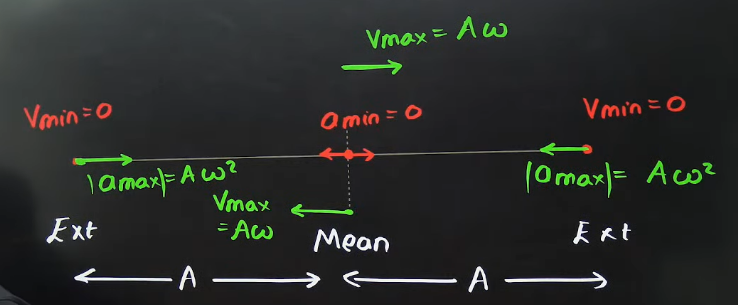 Vmax = Aω
Vmin = 0
amin = 0
Vmin = 0
|amax| = Aω²
|amax| = Aω²
Vmax
= Aω
Ext
Mean
Ext
A
A